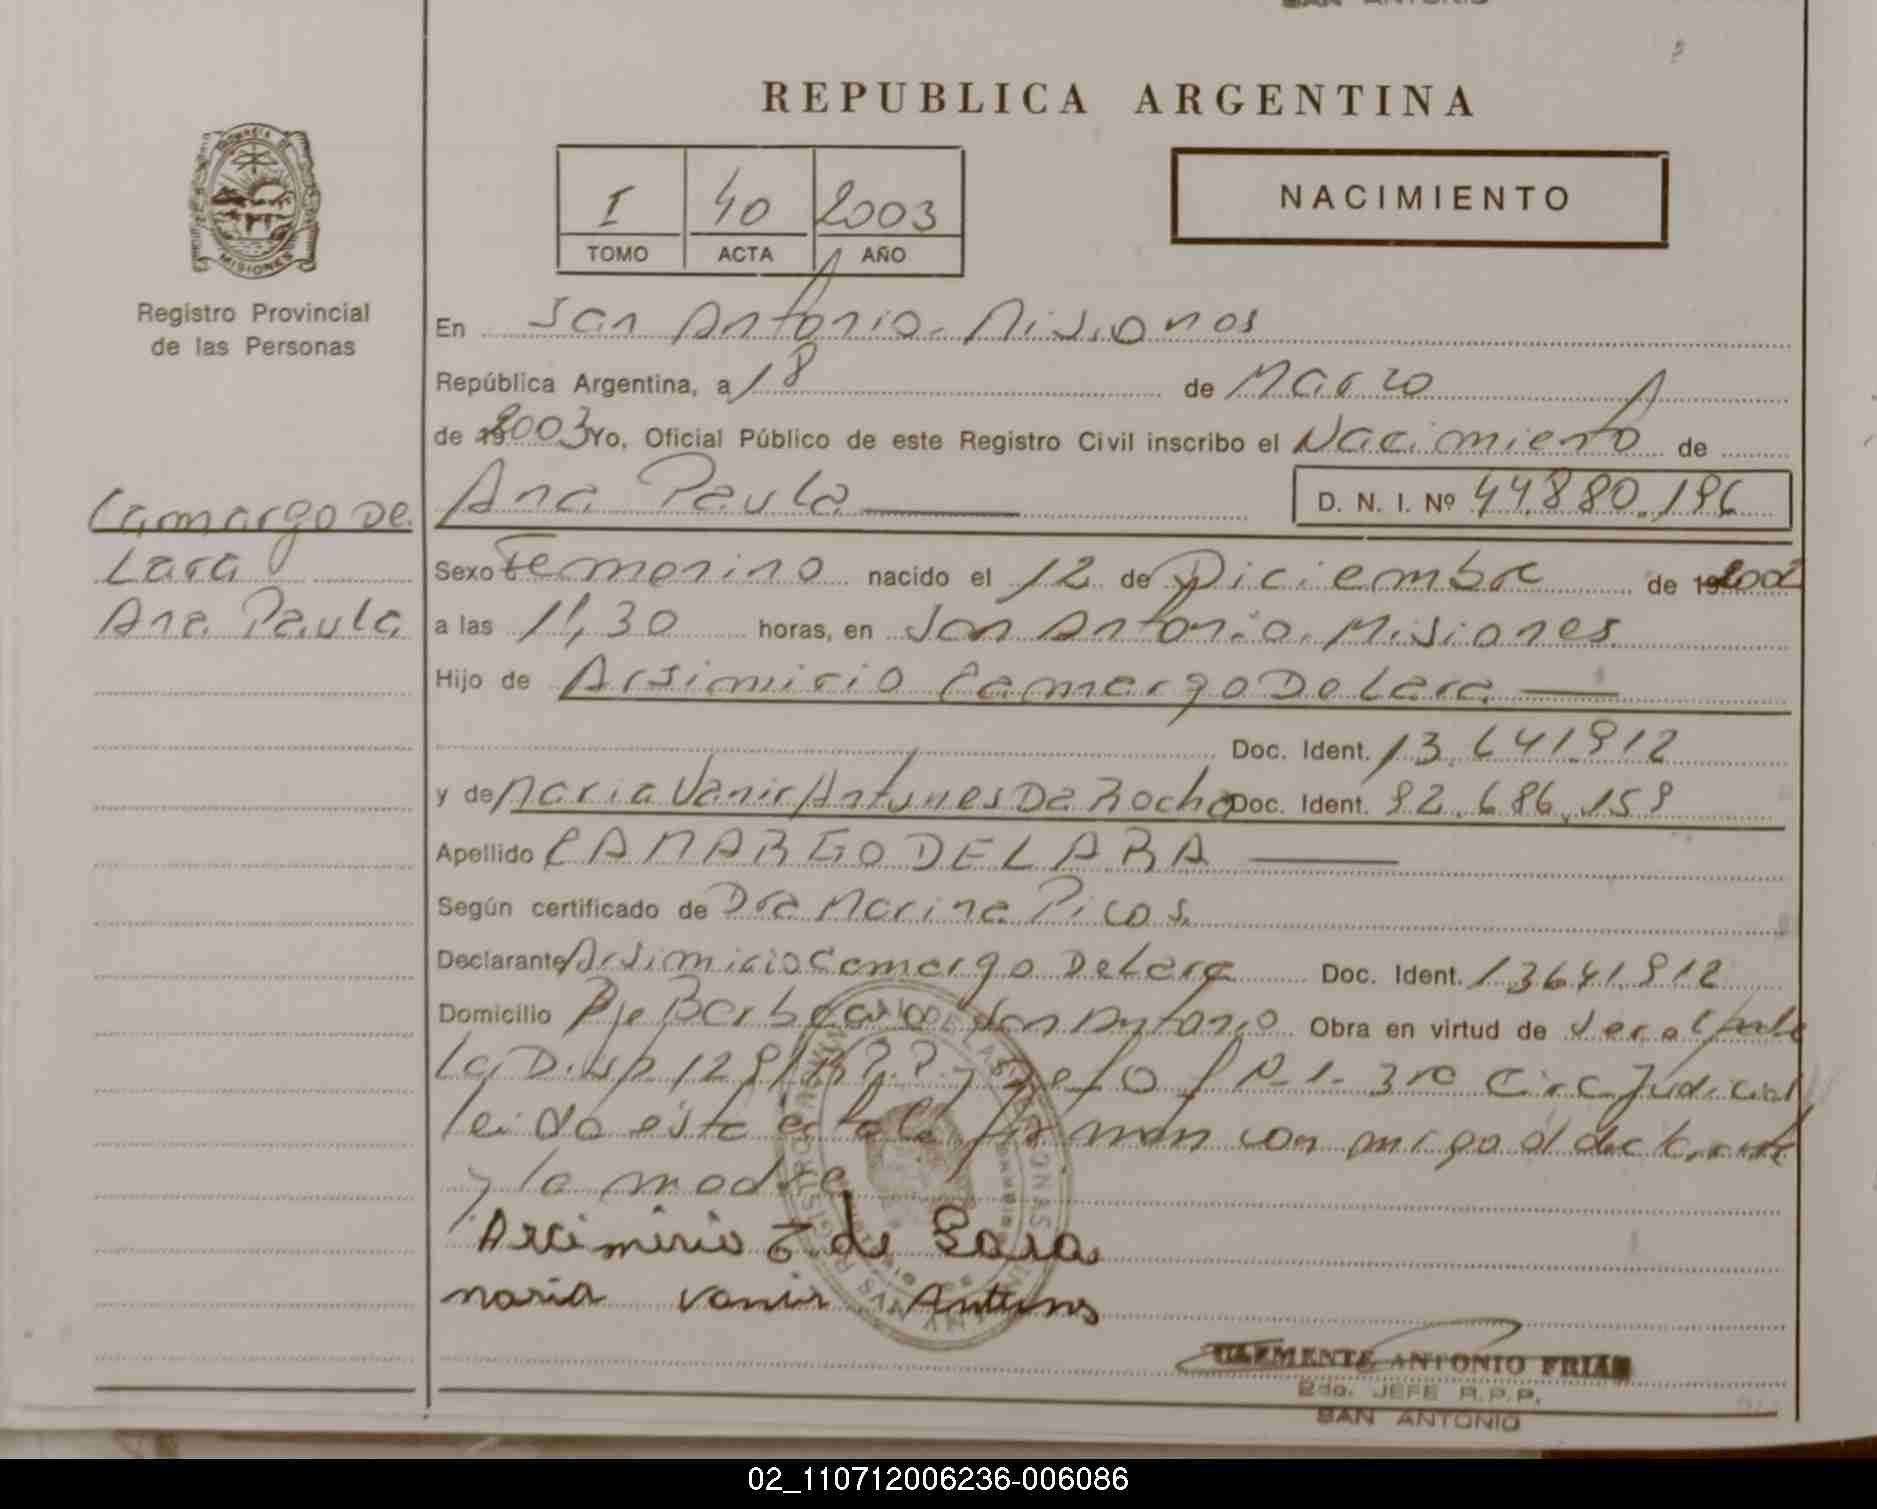 SAN ANTONIO
REPUBLICA ARGENTINA
PROVINCIA DE
MISIONES
I 40 2003
TOMO ACTA AÑO
NACIMIENTO
Registro Provincial
de las Personas
En San Antonio. Misiones
República Argentina, a 18 de Marzo
de 19 2003 Yo, Oficial Público de este Registro Civil inscribo el Nacimiento de
Camargo De
Lara
Ana Paula
Ana Paula D. N. I. Nº 44.880.196
Sexo Femenino nacido el 12 de Diciembre de 19 2002
a las 11,30 horas, en San Antonio. Misiones
Hijo de Arsimirio Camargo De Lara
Doc. Ident. 13.641.912
y de Maria Vanir Antunes Da Rocha Doc. Ident. 92.686.159
Apellido CAMARGO DE LARA
Según certificado de Dra Marina Picos
Declarante Arsimirio Camargo De Lara Doc. Ident. 13641.912
Domicilio Pje San Antonio Obra en virtud de
La Disp 3ra Circ Judicial
leida esta acta la firman con migo el declarante
y la madre
Arcimirio C. de Lara
maria vanir Antunes
CLEMENTE ANTONIO FRIAS
2do. JEFE R.P.P.
SAN ANTONIO
02_110712006236-006086